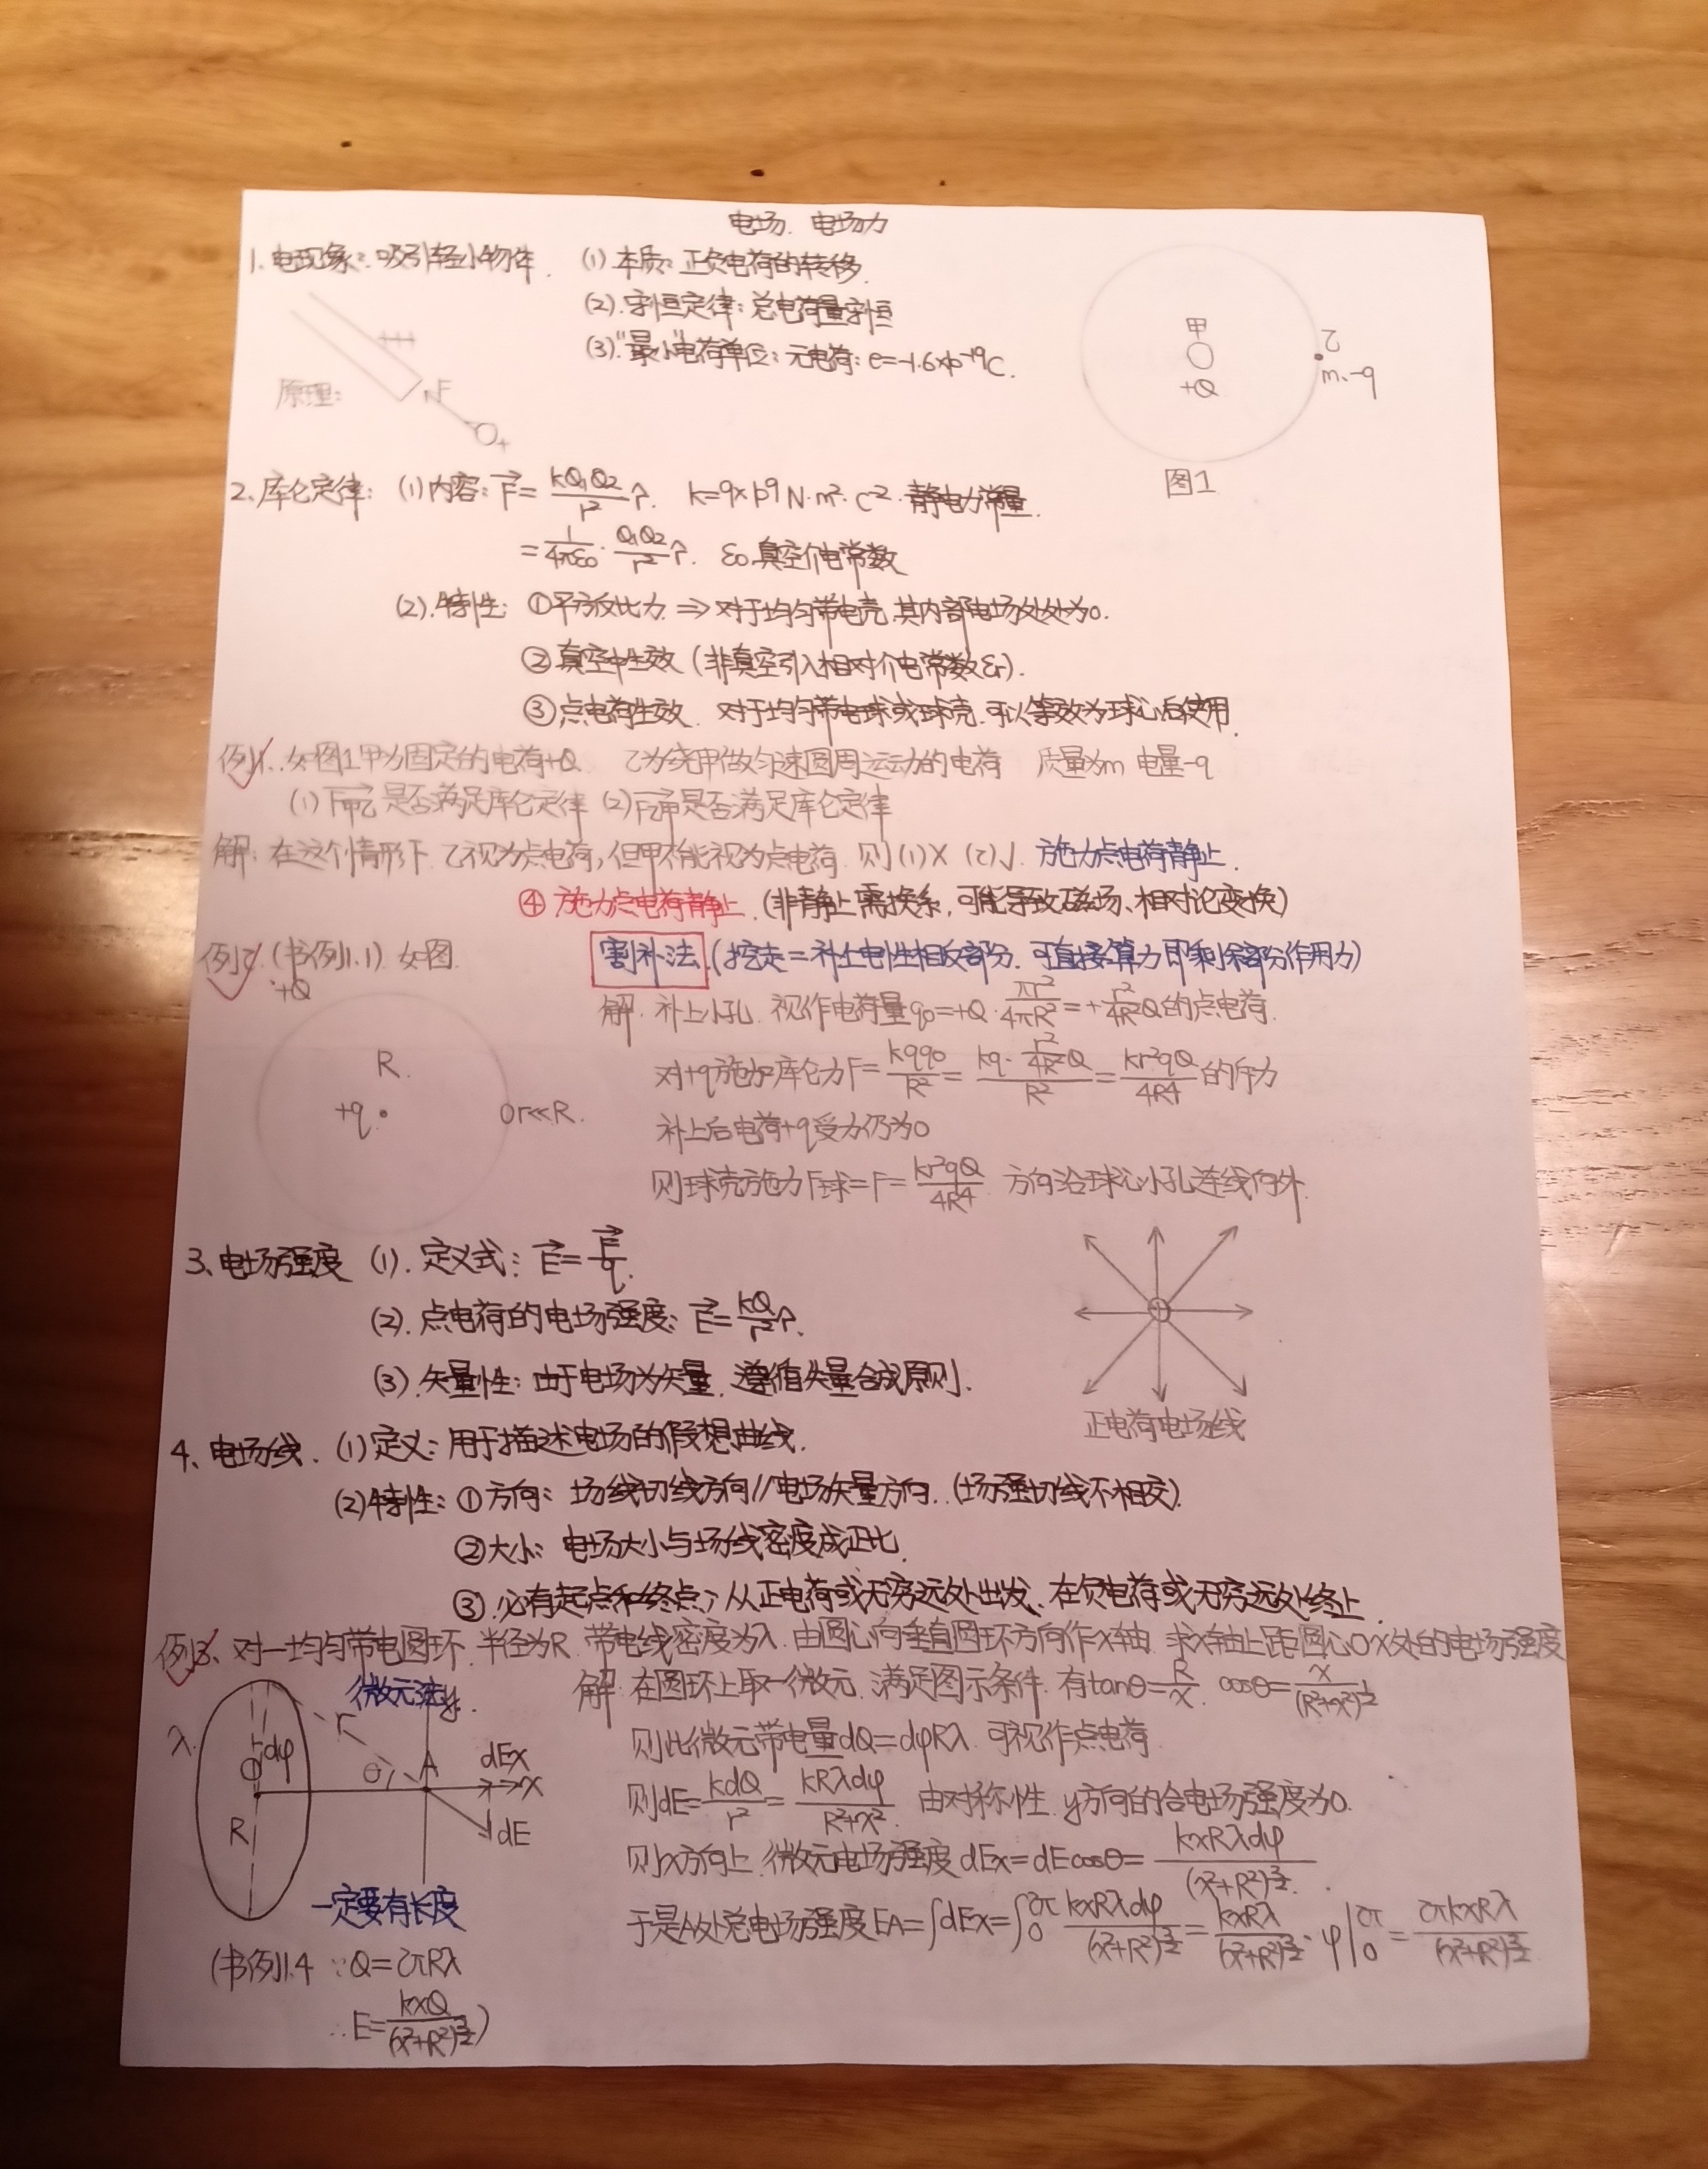 电场、电场力
1.电现象:吸引轻小物体. (1)本质:正负电荷的转移.
(2).守恒定律:总电荷量守恒
(3)."最小"电荷单位:元电荷:e=-1.6×10⁻¹⁹C.
原理:
F
+
甲
+Q
乙
m.-q
图1
2、库仑定律: (1)内容:F⃗=kQ₁Q₂/r² r̂. k=9×10⁹N·m²·C⁻².静电力常量.
=1/4πε₀·Q₁Q₂/r² r̂. ε₀.真空介电常数
(2).特性: ①平方反比力. ⇒ 对于均匀带电壳.其内部电场处处为0.
②真空中生效 (非真空引入相对介电常数εr).
③点电荷生效. 对于均匀带电球或球壳.可以等效为球心后使用.
例1.如图1.甲为固定的电荷+Q 乙为绕甲做匀速圆周运动的电荷 质量为m 电量-q
(1)F甲乙是否满足库仑定律 (2)F乙甲是否满足库仑定律
解:在这个情形下.乙视为点电荷,但甲不能视为点电荷.则(1)× (2)√. 施力点电荷静止.
④ 施力点电荷静止.(非静止需换系,可能导致磁场、相对论变换)
例2.(书例1.1) 如图. 割补法.(挖走=补上电性相反部分.可直接算力即剩余部分作用力)
+Q
R.
+q
r<<R.
解.补上小孔.视作电荷量q₀=+Q·πr²/4πR²=+r²/4R²Q的点电荷.
对+q施加库仑力F=kqq₀/R²=kq·r²/4R²Q/R²=kr²qQ/4R⁴的斥力
补上后电荷+q受力仍为0
则球壳施力F球=F=kr²qQ/4R⁴ 方向沿球心小孔连线向外.
3、电场强度 (1).定义式:E⃗=F⃗/q.
(2).点电荷的电场强度:E⃗=kQ/r² r̂.
(3).矢量性:由于电场为矢量.遵循矢量合成原则.
正电荷电场线
4、电场线. (1)定义:用于描述电场的假想曲线.
(2)特性:①方向:场线切线方向//电场矢量方向..(场强切线不相交).
②大小:电场大小与场线密度成正比.
③.必有起点和终点,从正电荷或无穷远处出发、在负电荷或无穷远处终止.
例3、对一均匀带电圆环.半径为R.带电线密度为λ.由圆心向垂直圆环方向作x轴.求x轴上距圆心O x处的电场强度
微元法
y.
λ.
r
dφ
θ
A
dEx
x
dE
R
一定要有长度
解.在圆环上取一微元.满足图示条件.有tanθ=R/x. cosθ=x/(R²+x²)^½
则此微元带电量dQ=dφRλ.可视作点电荷
则dE=kdQ/r²=kRλdφ/R²+x². 由对称性.y方向的合电场强度为0.
则x方向上.微元电场强度dEx=dEcosθ=kxRλdφ/(x²+R²)^3/2.
于是A处总电场强度EA=∫dEx=∫₀^2π kxRλdφ/(x²+R²)^3/2=kxRλ/(x²+R²)^3/2·φ|₀^2π=2πkxRλ/(x²+R²)^3/2.
(书例1.4 ∵Q=2πRλ
∴E=kxQ/(x²+R²)^3/2)